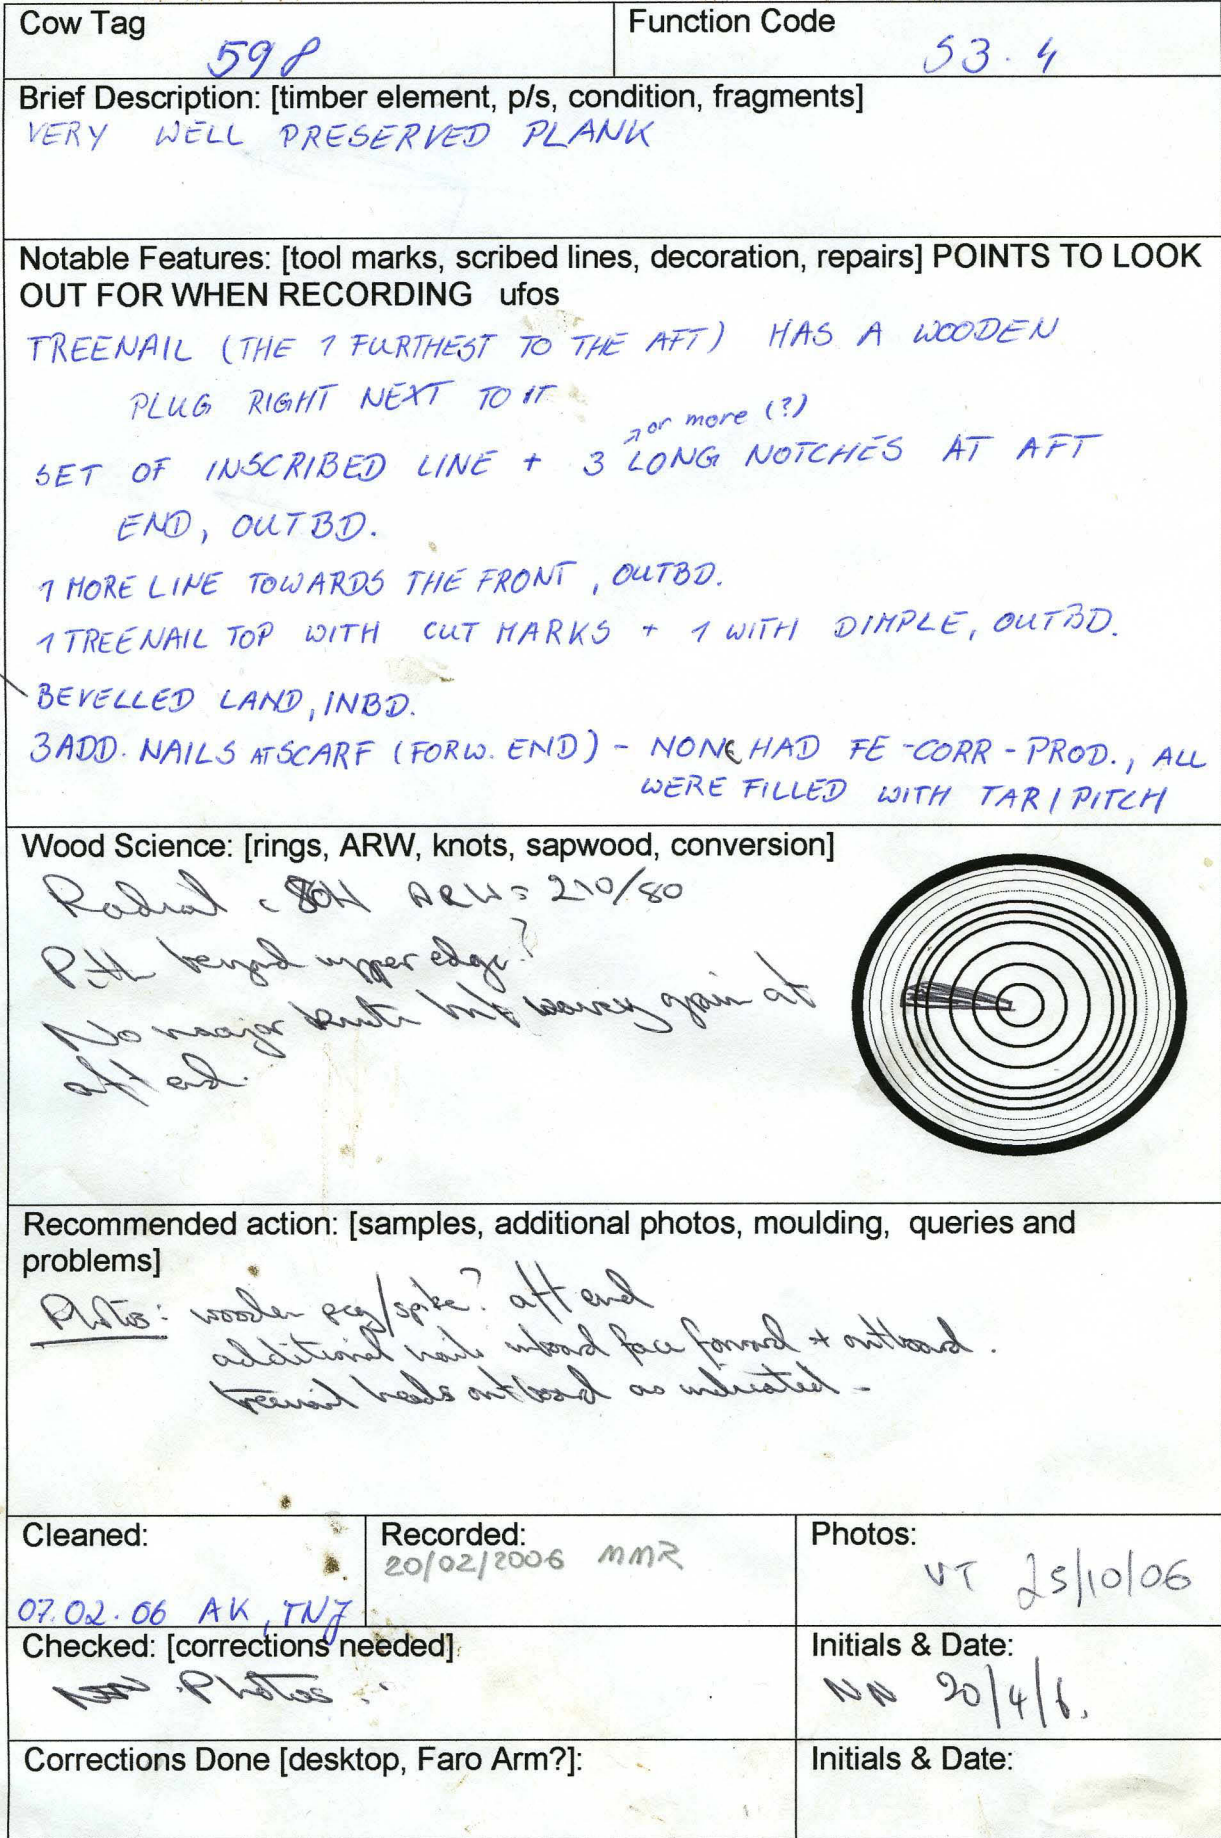 Cow Tag
598
Function Code
S3.4
Brief Description: [timber element, p/s, condition, fragments]
VERY WELL PRESERVED PLANK
Notable Features: [tool marks, scribed lines, decoration, repairs] POINTS TO LOOK
OUT FOR WHEN RECORDING ufos
TREENAIL (THE 1 FURTHEST TO THE AFT) HAS A WOODEN
PLUG RIGHT NEXT TO IT
or more (?)
SET OF INSCRIBED LINE + 3 LONG NOTCHES AT AFT
END, OUTBD.
1 MORE LINE TOWARDS THE FRONT, OUTBD.
1 TREENAIL TOP WITH CUT MARKS + 1 WITH DIMPLE, OUTBD.
BEVELLED LAND, INBD.
3 ADD. NAILS AT SCARF (FORW. END) - NONE HAD FE-CORR-PROD., ALL
WERE FILLED WITH TAR/PITCH
Wood Science: [rings, ARW, knots, sapwood, conversion]
Radial ARW = 210/80
Pith beyond upper edge?
No major knots but wavey grain at
aft end.
Recommended action: [samples, additional photos, moulding, queries and
problems]
Photos: wooden peg/spike? aft end
additional nails inboard face forward + outboard.
treenail heads outboard as indicated -
Cleaned:
07.02.06 AK, TNJ
Recorded:
20/02/2006 MMR
Photos:
VT 25/10/06
Checked: [corrections needed]
Photos
Initials & Date:
NN 20/4/6.
Corrections Done [desktop, Faro Arm?]:
Initials & Date: